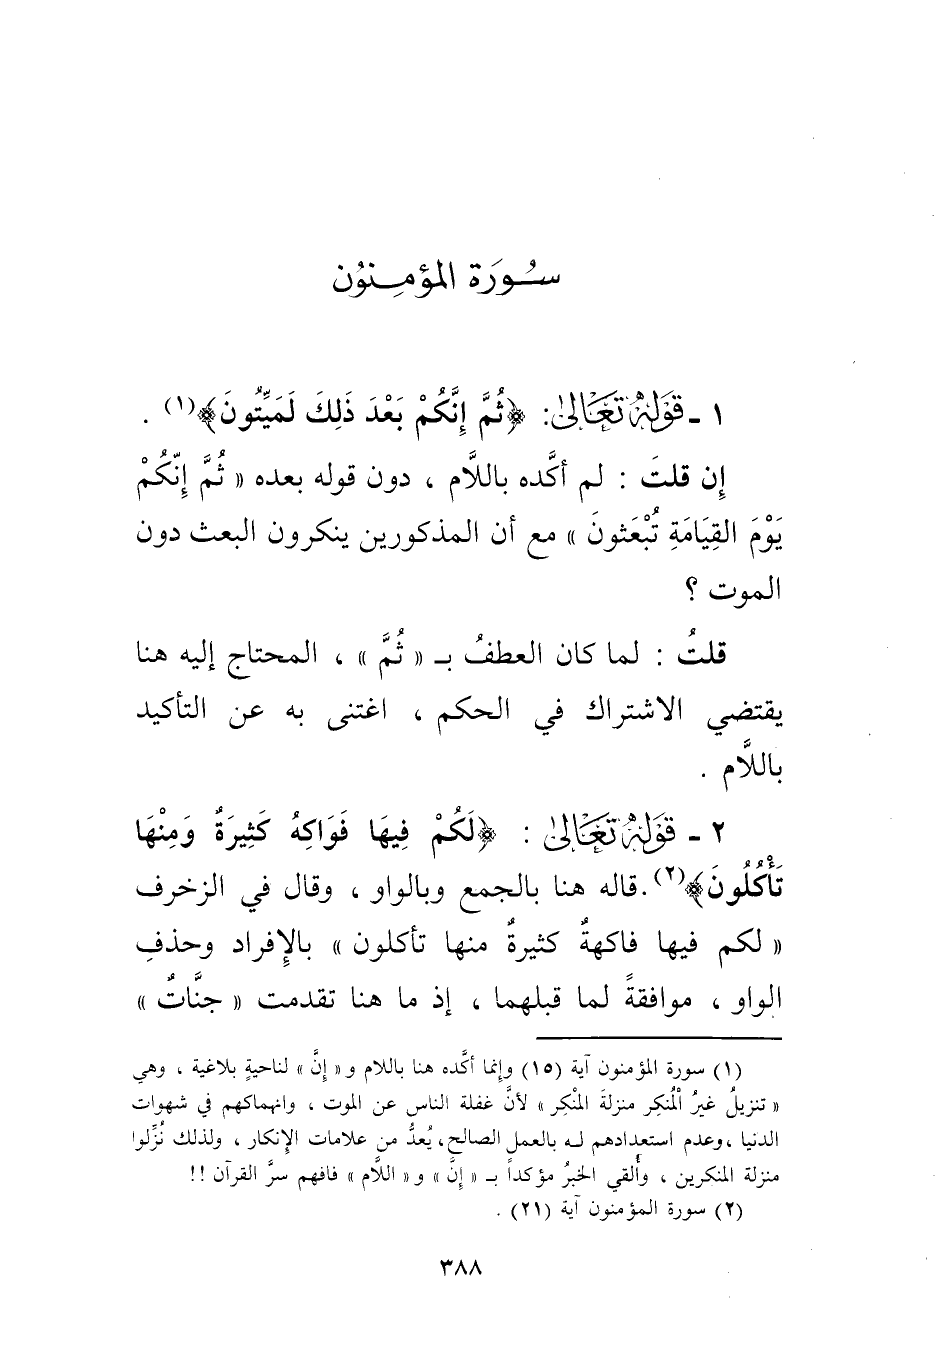 سُورَة المؤمِنوُن
١ ـ قَوْلُهُ تَعَالىٰ: ﴿ثُمَّ إِنَّكُمْ بَعْدَ ذَلِكَ لَمَيِّتُونَ﴾(١) .
إِن قلتَ : لم أكَّده باللَّام ، دون قوله بعده « ثُمَّ إِنّكُمْ
يَوْمَ القِيَامَةِ تُبْعَثونَ » مع أن المذكورين ينكرون البعث دون
الموت ؟
قلتُ : لما كان العطفُ بـ « ثُمَّ » ، المحتاج إليه هنا
يقتضي الاشتراك في الحكم ، اغتنى به عن التأكيد
باللَّام .
٢ ـ قَوْلُهُ تَعَالىٰ : ﴿لَكُمْ فِيهَا فَوَاكِهُ كَثِيرَةٌ وَمِنْهَا
تَأْكُلُونَ﴾(٢) .قاله هنا بالجمع وبالواو ، وقال في الزخرف
« لكم فيها فاكهةٌ كثيرةٌ منها تأكلون » بالإِفراد وحذفِ
الواو ، موافقةً لما قبلهما ، إذ ما هنا تقدمت « جنَّاتٌ »
(١) سورة المؤمنون آية (١٥) وإنما أكَّده هنا باللام و« إنَّ » لناحيةٍ بلاغية ، وهي
« تنزيلُ غيرُ اْلمُنكِر منزلةَ المنْكِر » لأنَّ غفلة الناس عن الموت ، وانهماكهم في شهوات
الدنيا ،وعدم استعدادهم لـه بالعمل الصالح، يُعدُّ من علامات الإنكار ، ولذلك نُزِّلوا
منزلة المنكرين ، وأُلقي الخبرُ مؤكداً بـ « إنَّ » و« اللَّام » فافهم سرَّ القرآن !!
(٢) سورة المؤمنون آية (٢١) .
٣٨٨